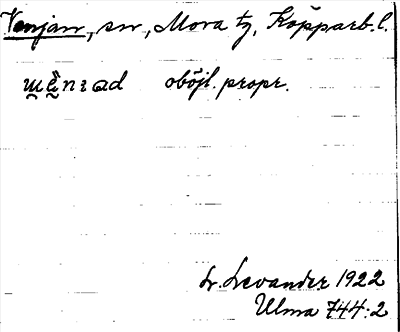 Venjan, sn, Mora tg, Kopparb. l.
oböjl. propr.
L. Levander 1922
Ulma 744:2